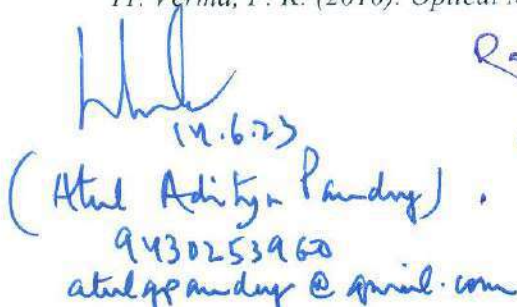 11. Verma, P. K. (2016). Optical
14.6.23
(Atul Aditya Pandey).
9430253960
@gmail.com